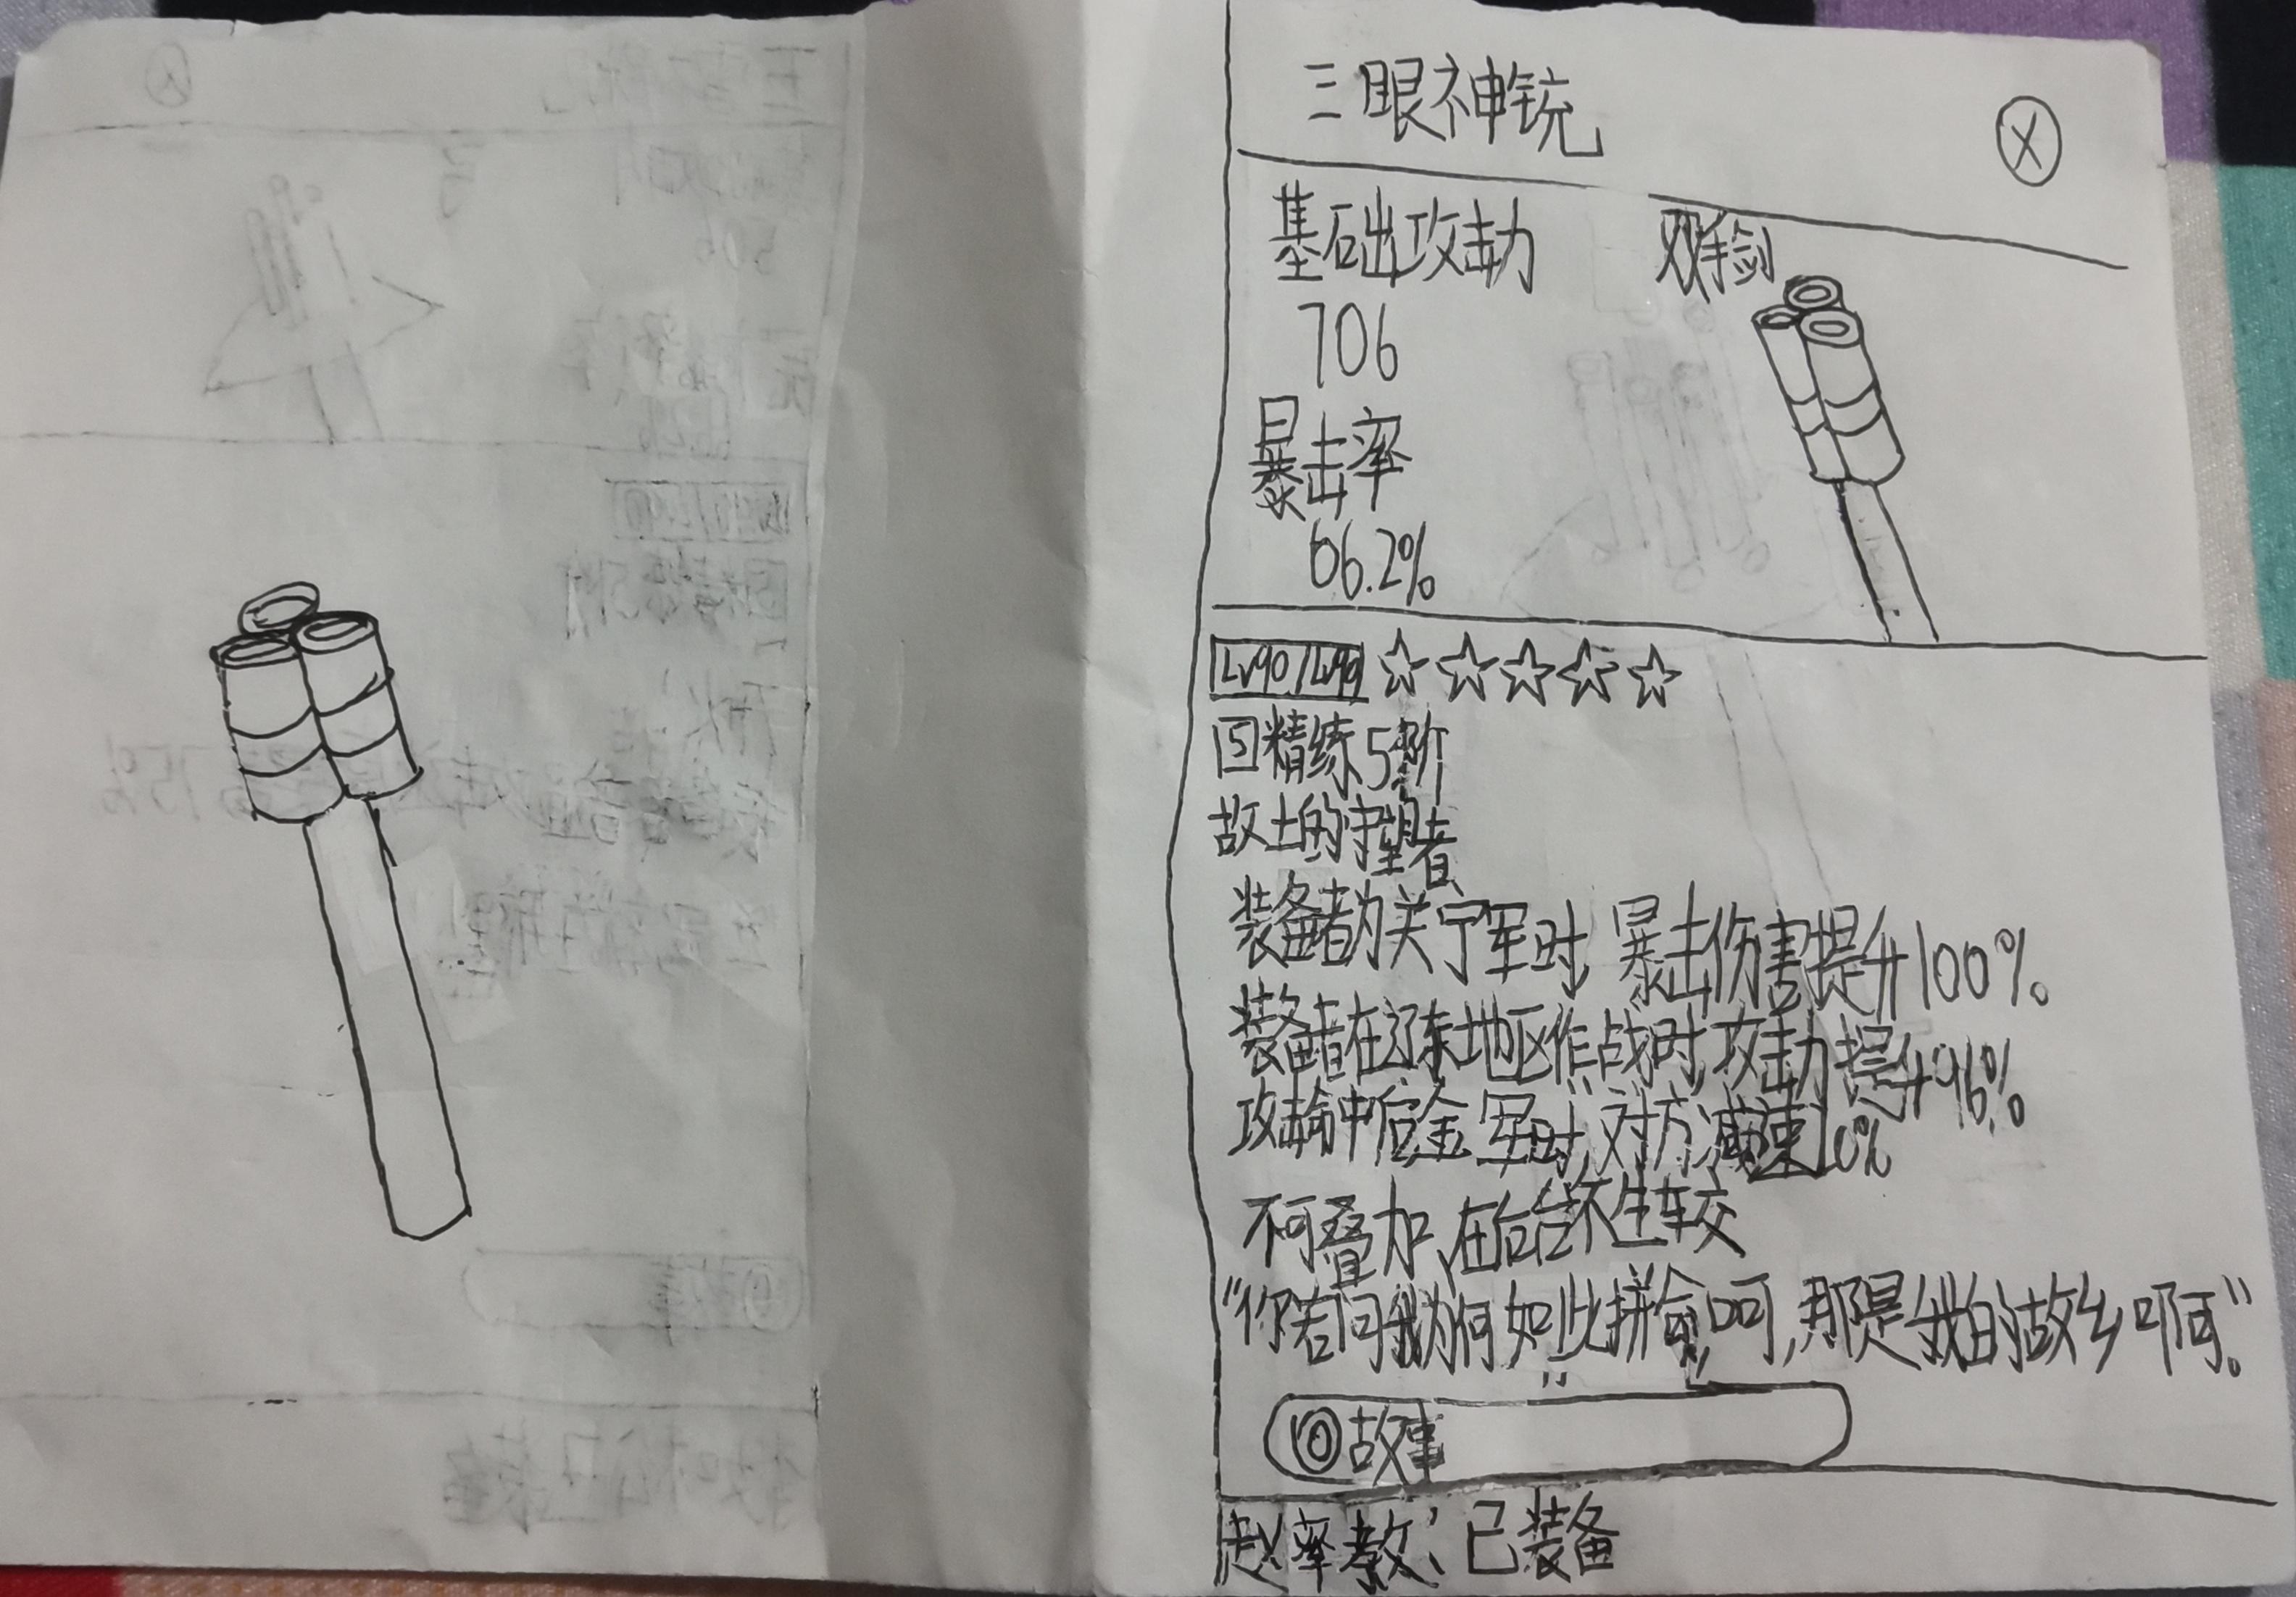 三眼神铳
X
基础攻击力
双手剑
706
暴击率
66.2%
Lv90/Lv90 ☆☆☆☆☆
5 精练5阶
故土的守望者
装备者为关宁军时,暴击伤害提升100%
装备者在辽东地区作战时,攻击力提升96%
攻击命中后金军时,对方减速10%
不可叠加,在后台不生效
“你若问我为何如此拼命,呵,那是我的故乡啊。”
故事
赵率教:已装备